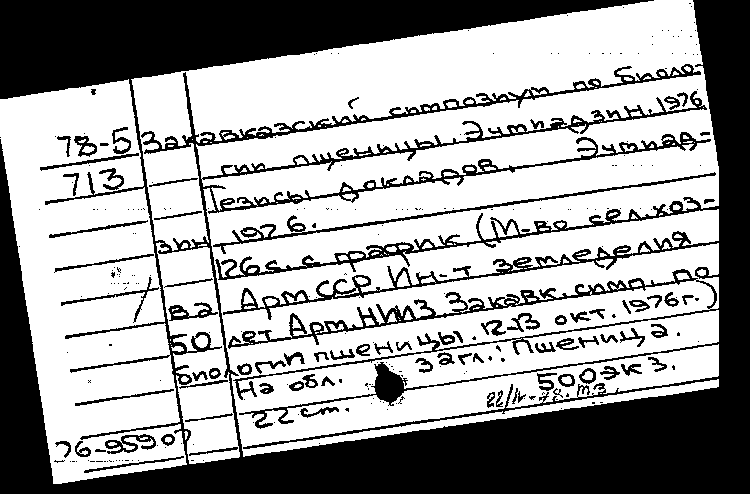 78-5 Закавказский симпозиум по биоло-
713 гии пшеницы. Эчмиадзин. 1976
Тезисы докладов. Эчмиад-
зин, 1976.
126 с. с график. (М-во сел. хоз-
ва АрмССР. Ин-т земледелия
50 лет Арм. НИИЗ. Закавк. симп. по
биологии пшеницы. 12-13 окт. 1976г.)
На обл. Загл.: Пшеница.
22 см. 500 экз.
22/IV-78. М.З.
76-95907